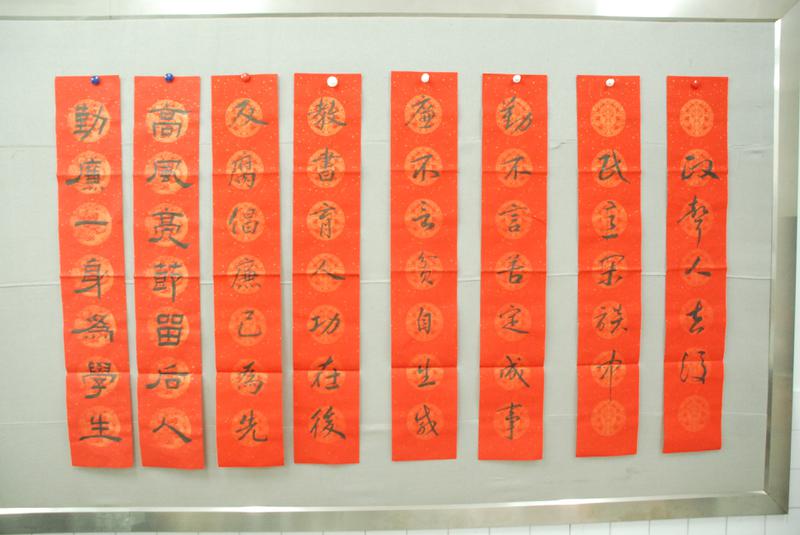 政聲人去後
民意閑談中
勤不言苦定成事
廉不言貧自生威
教書育人功在後
反腐倡廉己為先
高風亮節留后人
勤廉一身為學生